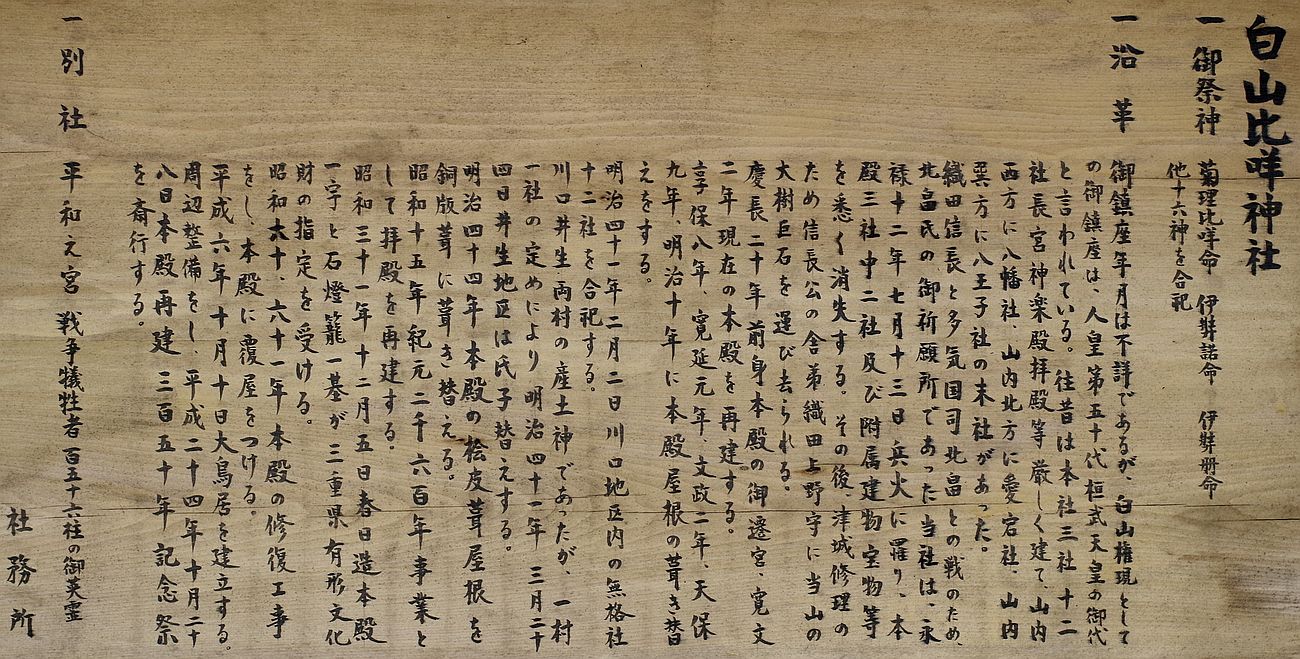 白山比咩神社
一 御祭神 菊理比咩命 伊弉諾命 伊弉册命
他十六神を合祀
一 沿革 御鎮座年月は不詳であるが、白山権現として
の御鎮座は、人皇第五十代桓武天皇の御代
と言われている。往昔は本社三社 十二
社長宮神楽殿拝殿等 厳しく建て、山内
西方に八幡社、山内北方に愛宕社、山内
巽方に八王子社の末社があった。
織田信長と多気国司北畠との戦のため、
北畠氏の御祈願所であった当社は、永
禄十二年七月十三日兵火に罹り、本
殿三社中二社及び附属建物宝物等
を悉く消失する。その後、津城修理の
ため信長公の舎弟織田上野守に当山の
大樹巨石を運び去られる。
慶長二十年 前身本殿の御遷宮、寛文
二年現在の本殿を再建する。
享保八年、寛延元年、文政二年、天保
九年、明治十年に本殿屋根の葺き替
えをする。
明治四十一年二月二日川口地区内の無格社
十二社を合祀する。
川口井生両村の産土神であったが、一村
一社の定めにより明治四十一年 三月二十
四日井生地区は氏子替えする。
明治四十四年本殿の桧皮葺屋根を
銅版葺に葺き替える。
昭和十五年紀元二千六百年事業と
して拝殿を再建する。
昭和三十一年十二月五日春日造本殿
一宇と石燈籠一基が三重県有形文化
財の指定を受ける。
昭和六十、六十一年本殿の修復工事
をし、本殿に覆屋をつける。
平成六年十月十日大鳥居を建立する。
周辺整備をし、平成二十四年十月二十
八日本殿再建 三百五十年 記念祭
を斎行する。
一 別社 平和之宮 戦争犠牲者百五十六柱の御英霊
社務所